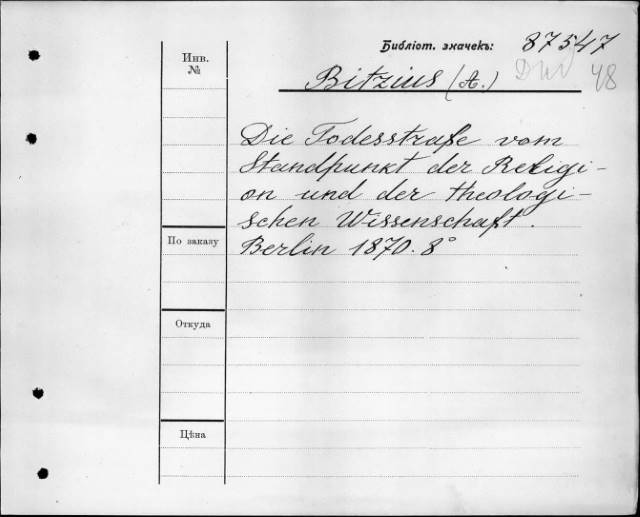 Библіот. значекъ: 87547
48
Инв.
№
Bitzius (A.)
Die Todesstrafe vom
Standpunkt der Religi-
on und der theologi-
schen Wissenschaft.
Berlin 1870. 8°
По заказу
Откуда
Цѣна